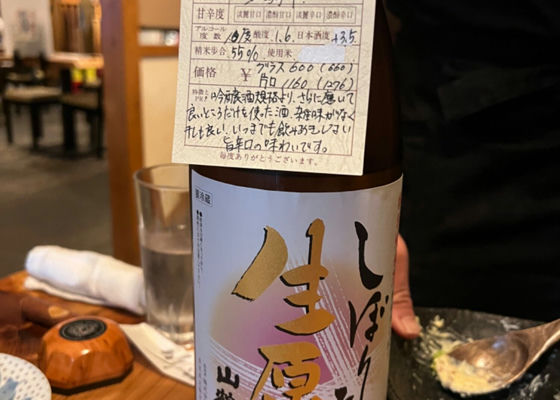 甘辛度 淡麗甘口 濃醇甘口 淡麗辛口 濃醇辛口
アルコール度数 度 酸度 1.6 日本酒度 +3.5
精米歩合 55% 使用米
価格 ¥ グラス 600 (660)
片口 1160 (1276)
吟醸酒規格より、さらに磨いて
良いところだけを使った酒。雑味がなく
キレも良い、いつまでも飲みあきしない
旨辛口の味わいです。
毎度ありがとうございます。
要冷蔵
しぼり
生原
山